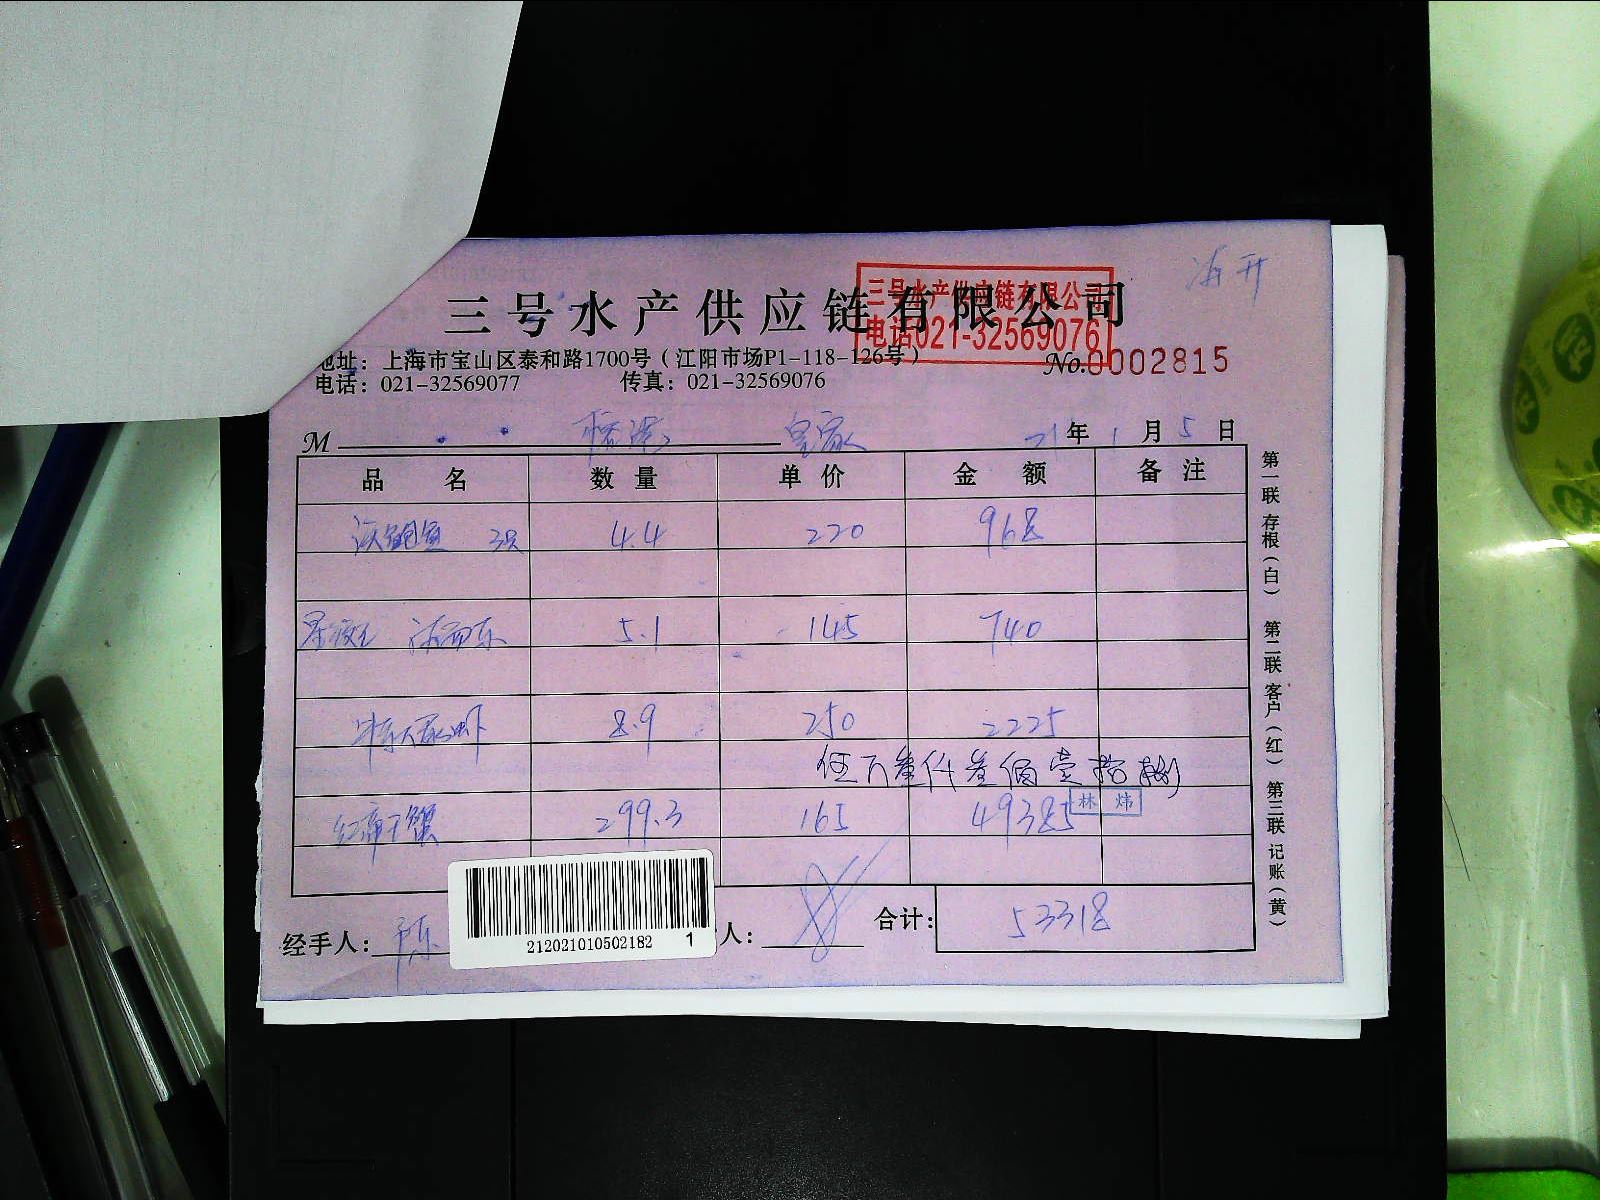 海开
三号水产供应链有限公司
三号水产供应链有限公司
电话021-32569076
地址：上海市宝山区泰和路1700号（江阳市场P1-118-126号）
No.0002815
电话：021-32569077 传真：021-32569076
M 皇家 21年1月5日
品名 数量 单价 金额 备注
4.4 220 968
5.1 145 740
8.9 250 2225
伍万叁仟叁佰壹拾捌
林炜
红帝王蟹 299.3 165 49385
经手人：陈
人：
合计：53318
212021010502182 1
第一联 存根（白） 第二联 客户（红） 第三联 记账（黄）